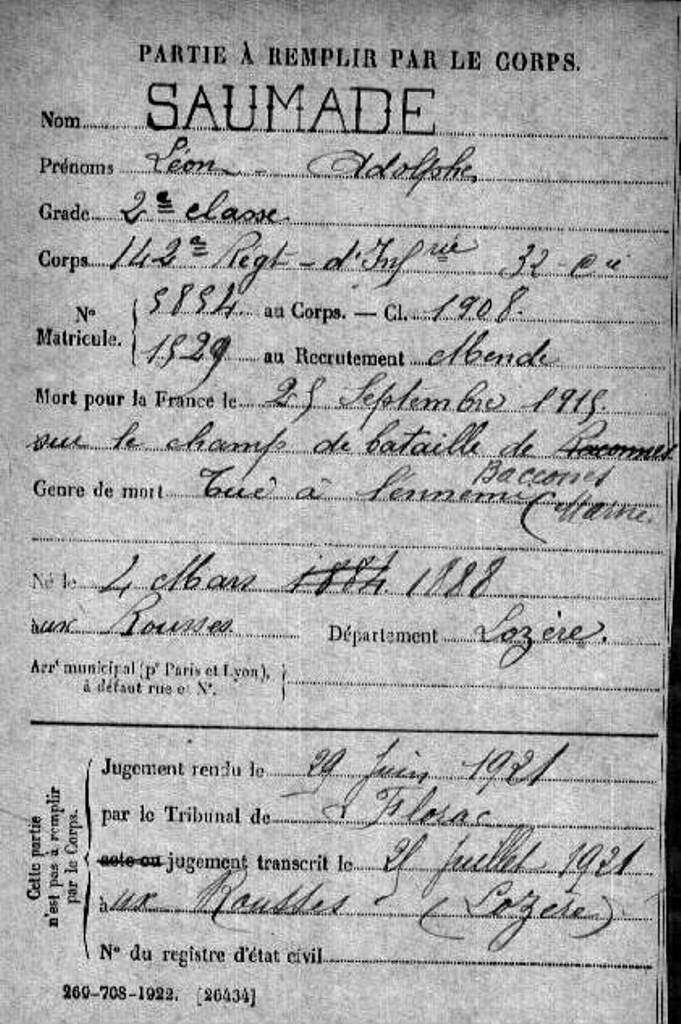 PARTIE À REMPLIR PAR LE CORPS.
Nom SAUMADE
Prénoms Léon - Adolphe
Grade 2e classe
Corps 142e Régt - d'Infrie 32 Cie
No Matricule. { 5854 au Corps. — Cl. 1908.
1529 au Recrutement Mende
Mort pour la France le 25 Septembre 1915.
sur le champ de bataille de Baconnes
Baccones
Genre de mort Tué à l'ennemi (Marne.
Né le 4 Mars 1884 1888
aux Rousses Département Lozère.
Arrt municipal (pr Paris et Lyon), à défaut rue et No. }
Cette partie n'est pas à remplir par le Corps.
Jugement rendu le 29 Juin 1921
par le Tribunal de Florac
acte ou jugement transcrit le 21 Juillet 1921
aux Rousses - (Lozère)
No du registre d'état civil
269-708-1922. [26434]